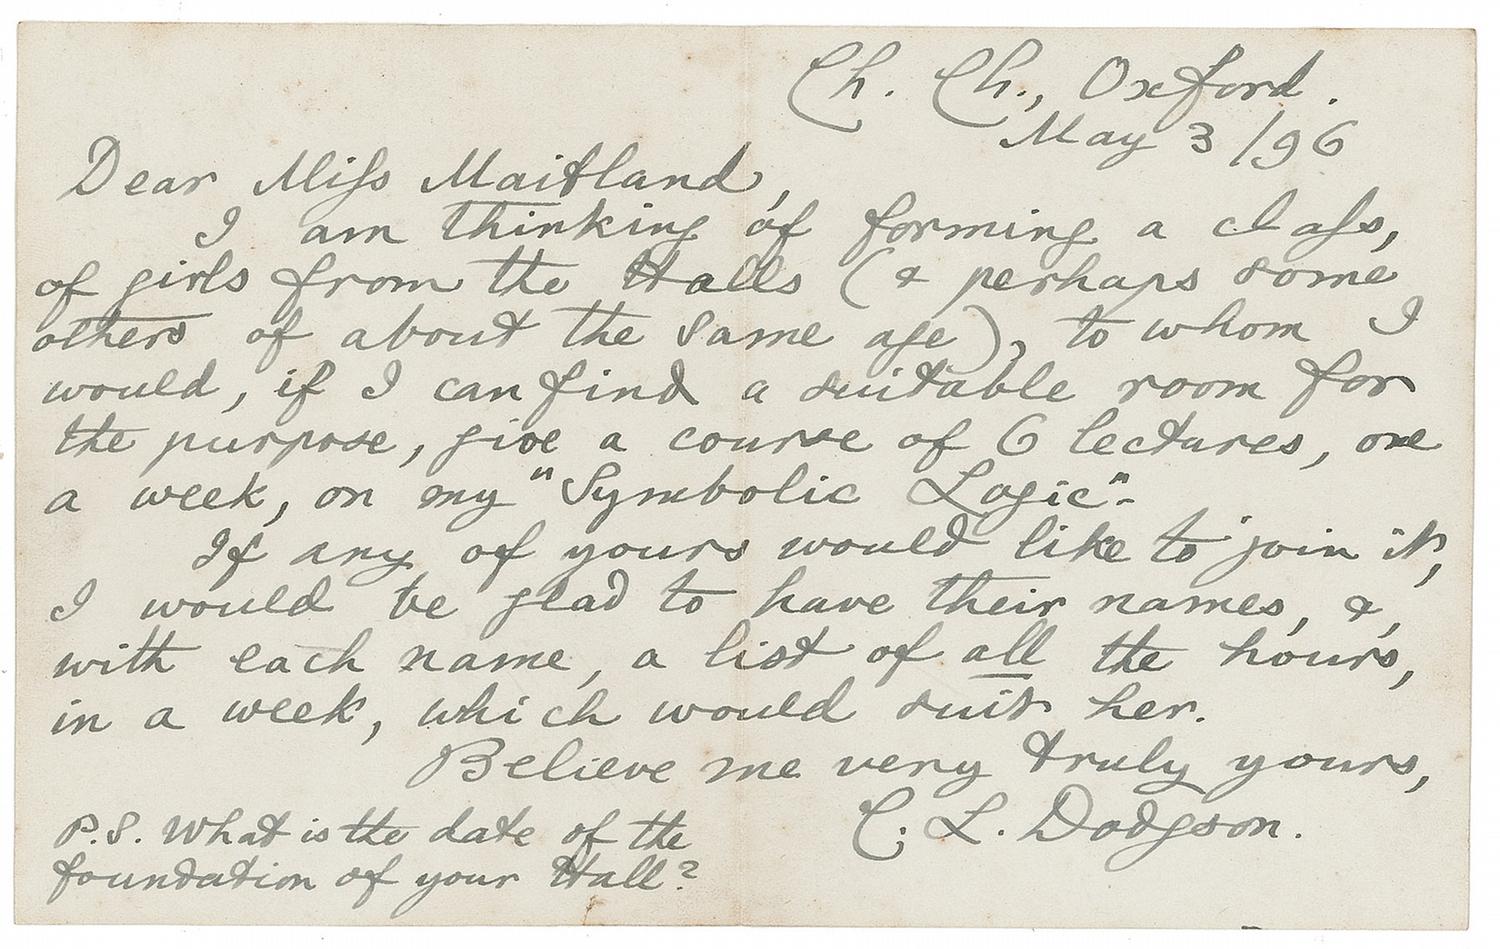 Ch. Ch., Oxford.
May 3/96
Dear Miſs Maitland,
I am thinking of forming a claſs,
of girls from the Halls (& perhaps some
others of about the same age), to whom I
would, if I can find a suitable room for
the purpose, give a course of 6 lectures, one
a week, on my "Symbolic Logic".
If any of yours would like to join it,
I would be glad to have their names, &,
with each name, a list of all the hours,
in a week, which would suit her.
Believe me very truly yours,
C. L. Dodgson.
P.S. What is the date of the
foundation of your Hall?